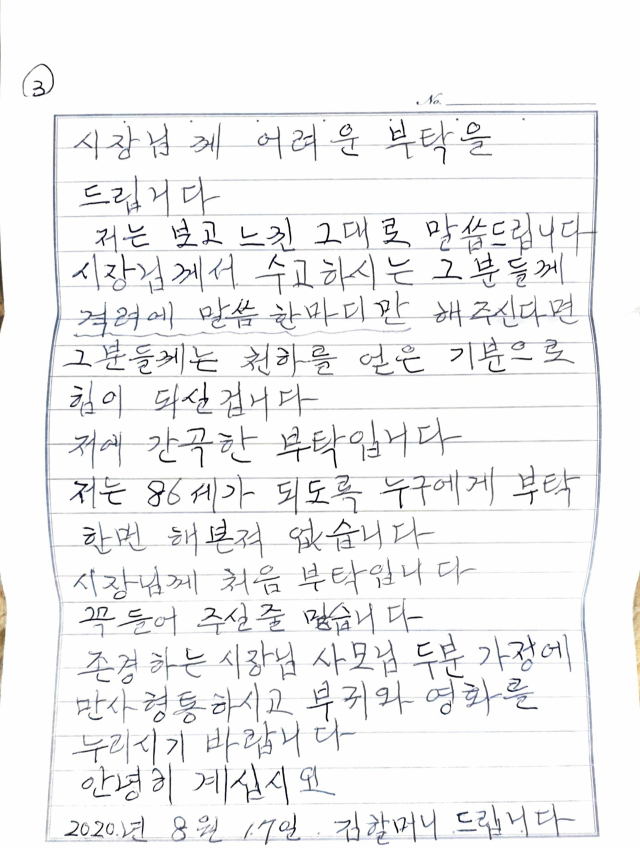 ③
No.
시장님 께 어려운 부탁을
드립니다
저는 보고 느낀 그대로 말씀드립니다
시장님께서 수고하시는 그분들께
격려에 말씀 한마디만 해주신다면
그분들께는 천하를 얻은 기분으로
힘이 되실겁니다
저에 간곡한 부탁입니다
저는 86세가 되도록 누구에게 부탁
한번 해본적 없습니다
시장님께 처음 부탁입니다
꼭들어 주실줄 믿습니다
존경하는 시장님 사모님 두분 가정에
만사형통하시고 부귀와 영화를
누리시기 바랍니다
안녕히 계십시요
2020.년 8월 17일. 김할머니 드립니다